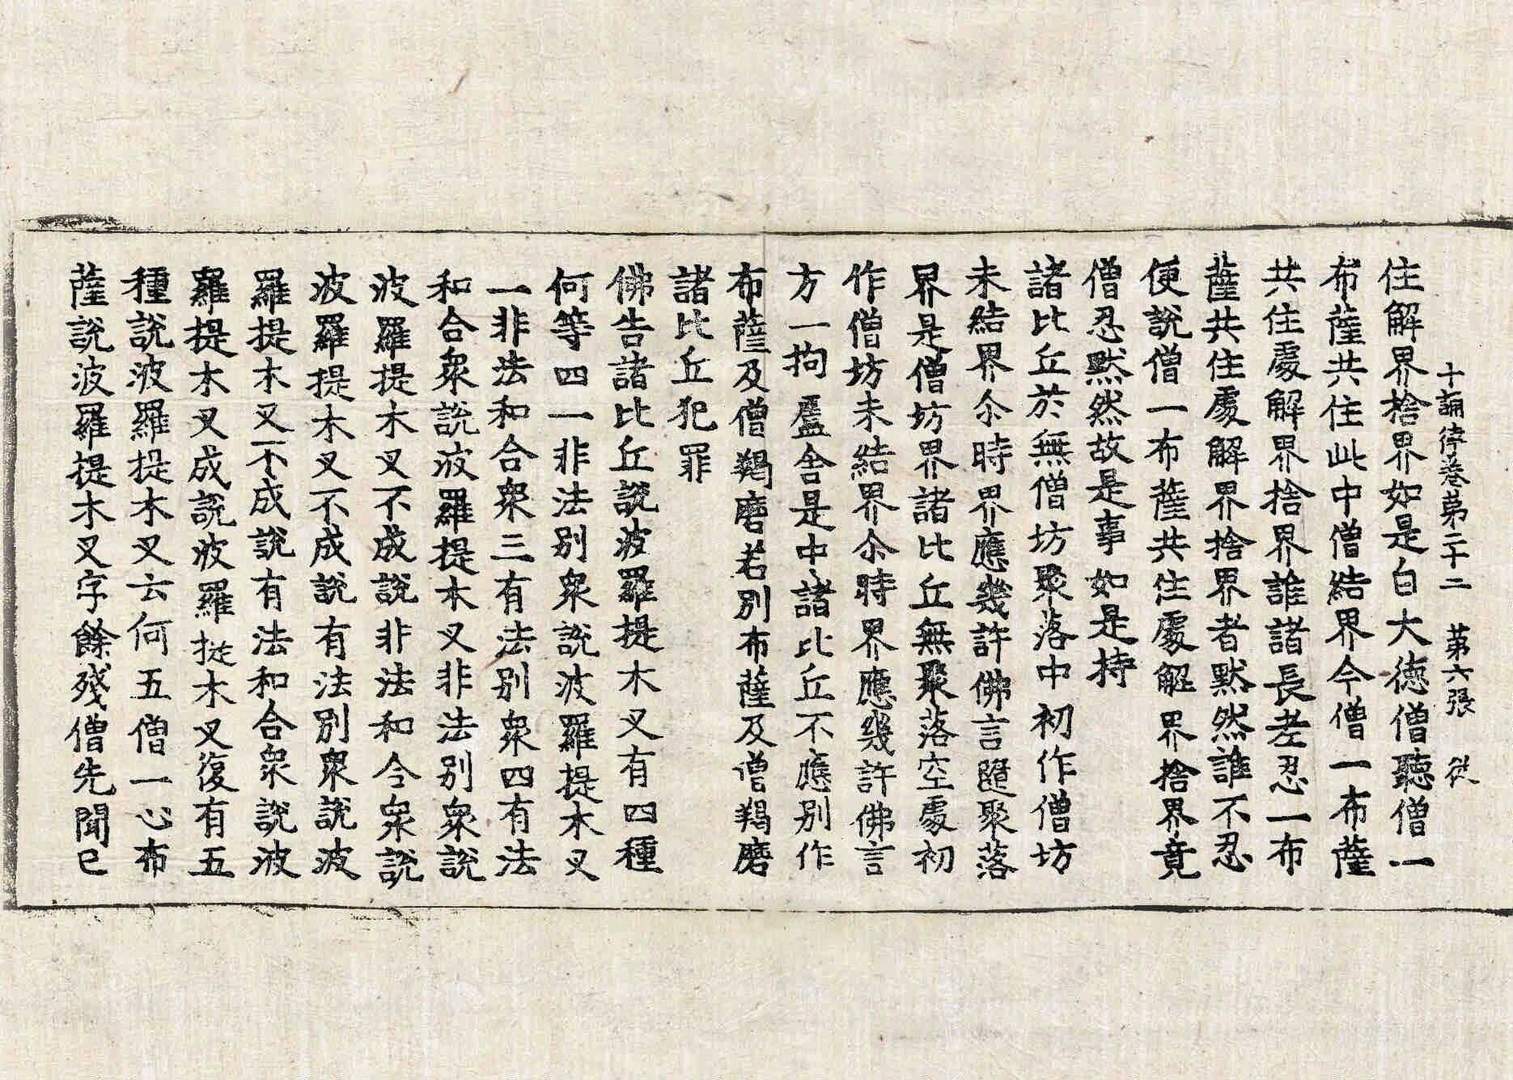 十誦律卷第二十二　第六張　従
住解界捨界如是白大德僧聽僧一
布薩共住此中僧結界今僧一布薩
共住處解界捨界誰諸長老忍一布
薩共住處解界捨界者黙然誰不忍
便說僧一布薩共住處解界捨界竟
僧忍黙然故是事如是持
諸比丘於無僧坊聚落中初作僧坊
未結界尒時界應幾許佛言隨聚落
界是僧坊界諸比丘無聚落空處初
作僧坊未結界尒時界應幾許佛言
方一拘盧舍是中諸比丘不應別作
布薩及僧羯磨若別布薩及僧羯磨
諸比丘犯罪
佛告諸比丘說波羅提木叉有四種
何等四一非法別衆說波羅提木叉
一非法和合衆三有法別衆四有法
和合衆說波羅提木叉非法別衆說
波羅提木叉不成說非法和合衆說
波羅提木叉不成說有法別衆說波
羅提木叉不成說有法和合衆說波
羅提木叉成說波羅提木叉復有五
種說波羅提木叉云何五僧一心布
薩說波羅提木叉字餘殘僧先聞已